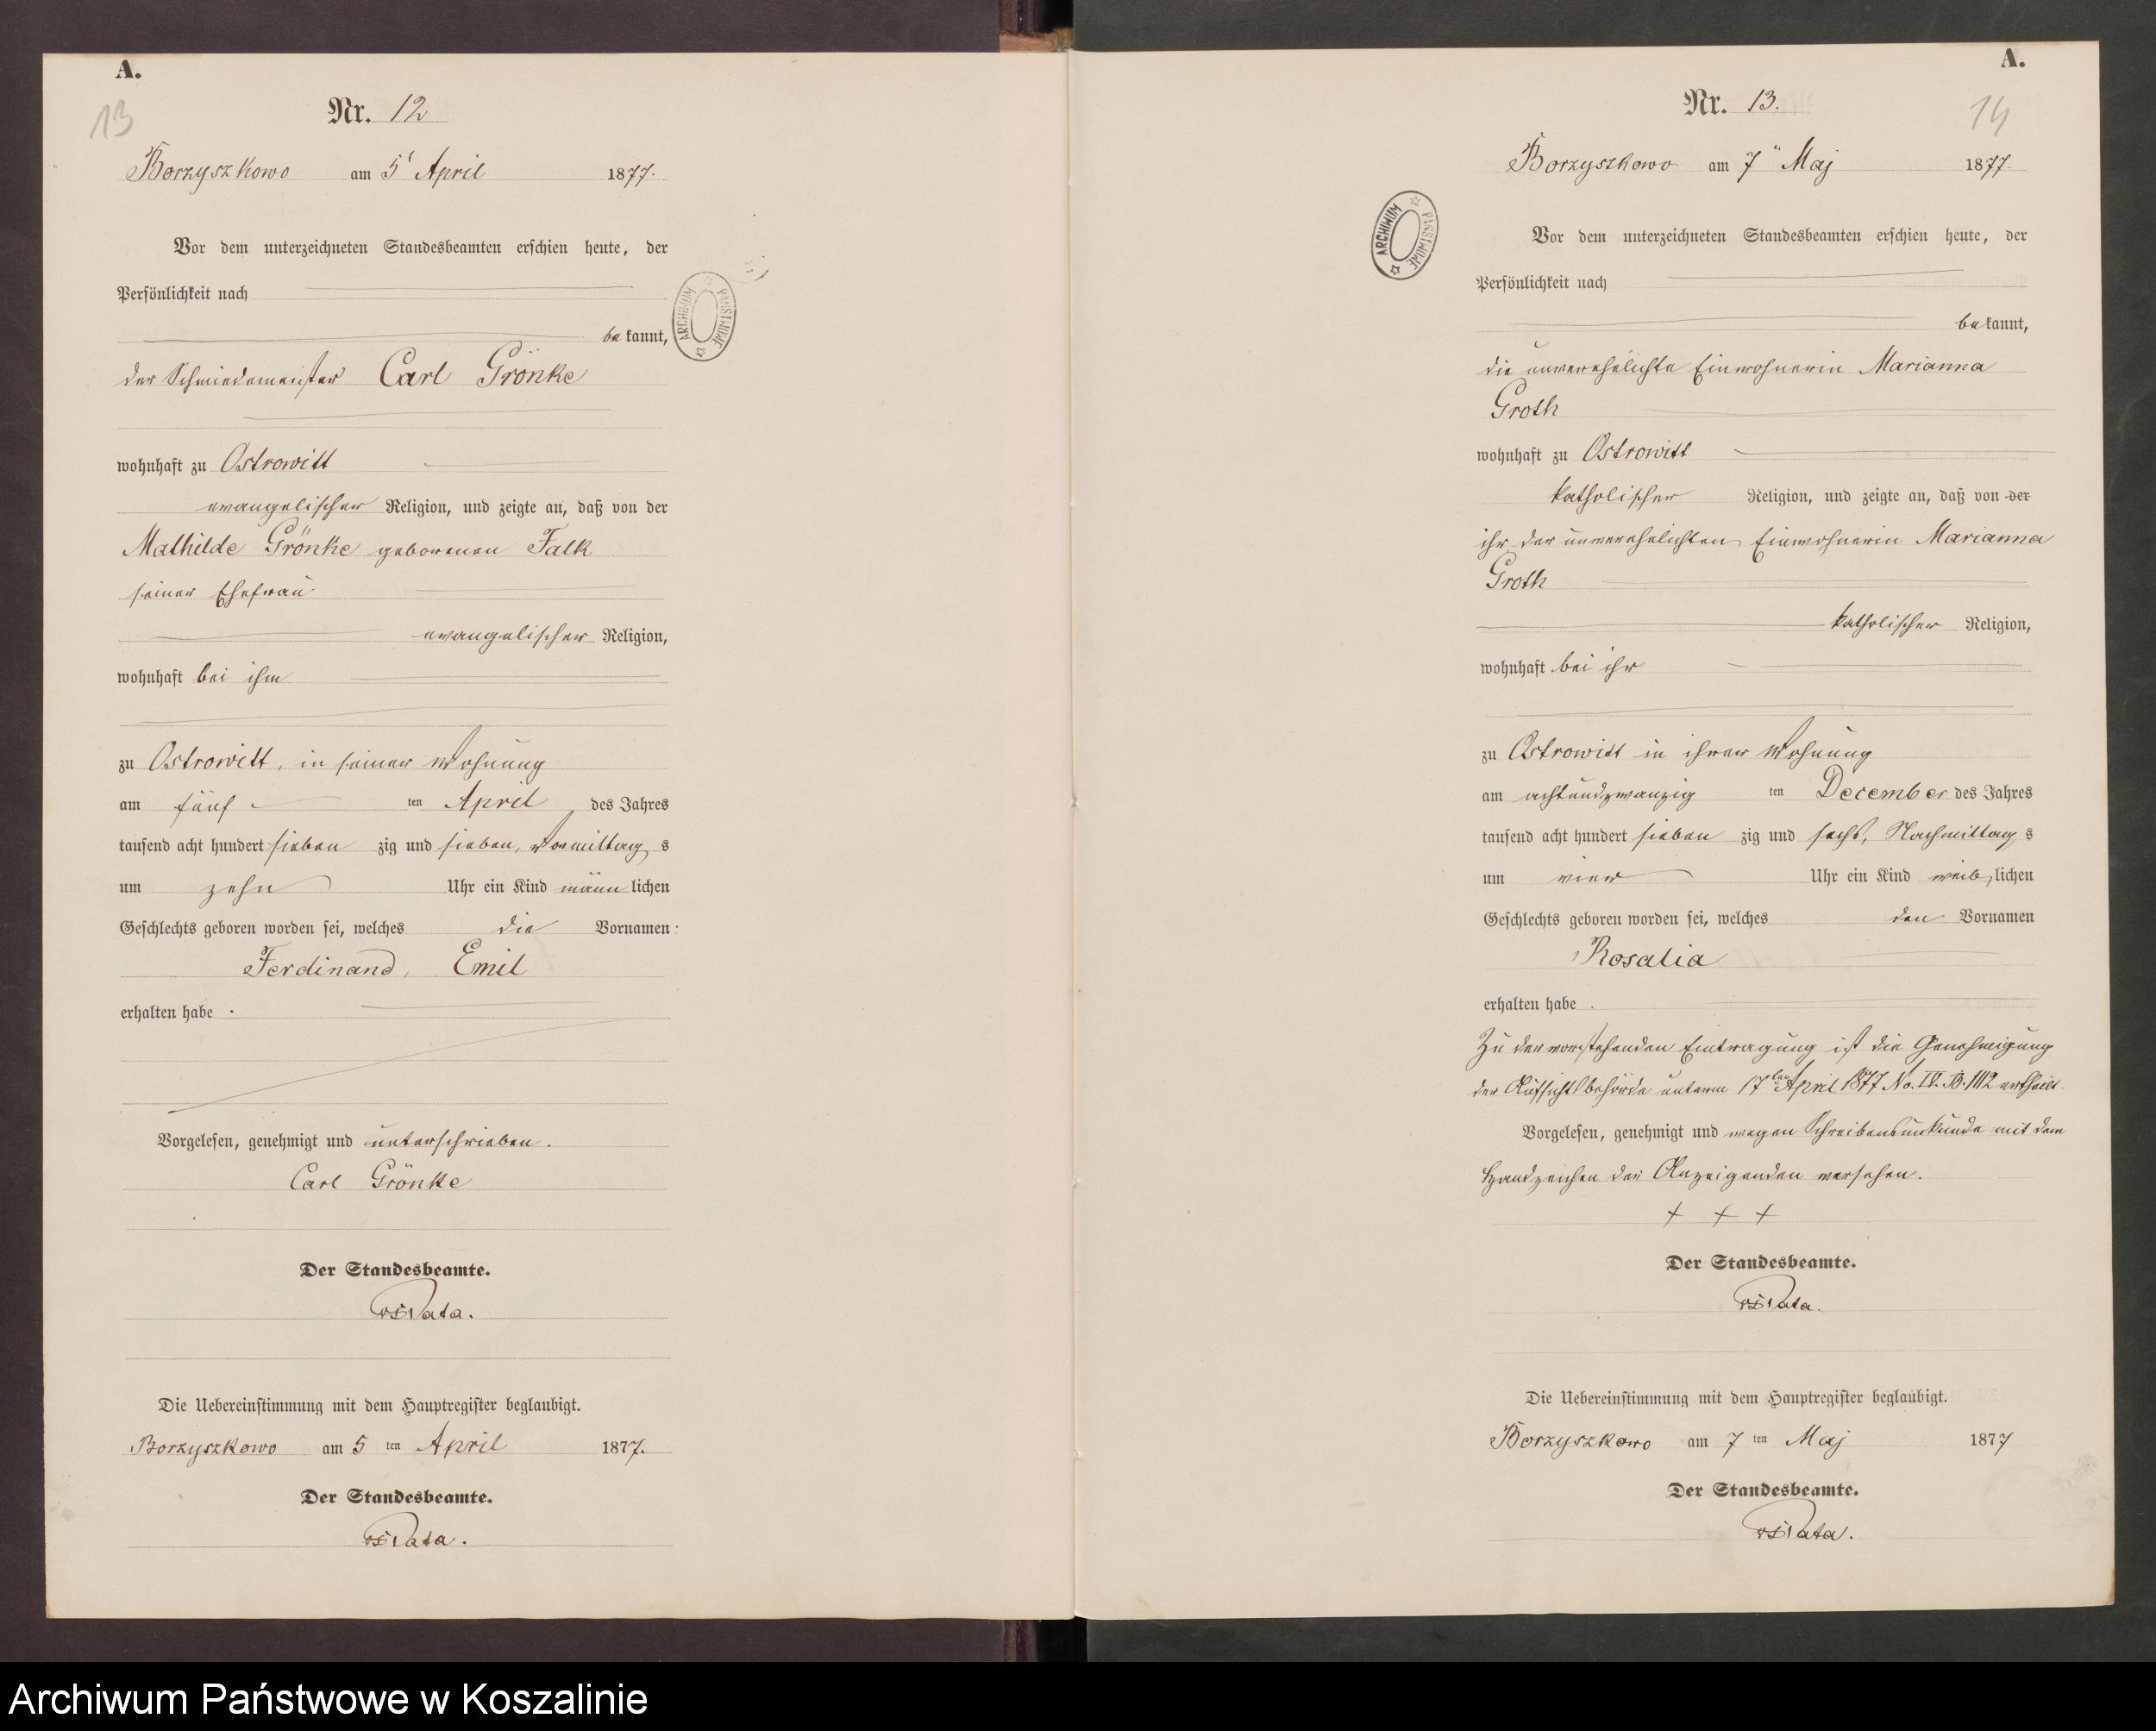 A.
13
Nr. 12
Borzyszkowo am 5t April 1877.
Vor dem unterzeichneten Standesbeamten erschien heute, der
Persönlichkeit nach
bekannt,
der Schmiedemeister Carl Grönke
wohnhaft zu Ostrowitt
evangelischer Religion, und zeigte an, daß von der
Mathilde Grönke geborenen Falk
seiner Ehefrau
evangelischer Religion,
wohnhaft bei ihm
zu Ostrowitt, in seiner Wohnung
am fünf ten April des Jahres
tausend acht hundert sieben zig und sieben, Vormittags
um zehn Uhr ein Kind männlichen
Geschlechts geboren worden sei, welches die Vornamen:
Ferdinand, Emil
erhalten habe.
Vorgelesen, genehmigt und unterschrieben.
Carl Grönke
Der Standesbeamte.
Die Uebereinstimmung mit dem Hauptregister beglaubigt.
Borzyszkowo am 5 ten April 1877.
Der Standesbeamte.
ARCHIWUM PAŃSTWOWE
A.
14
Nr. 13.
Borzyszkowo am 7" Maj 1877.
Vor dem unterzeichneten Standesbeamten erschien heute, der
Persönlichkeit nach
bekannt,
die unverehelichte Einwohnerin Marianna
Groth
wohnhaft zu Ostrowitt
katholischer Religion, und zeigte an, daß von der
ihr der unverehelichten Einwohnerin Marianna
Groth
katholischer Religion,
wohnhaft bei ihr
zu Ostrowitt in ihrer Wohnung
am achtundzwanzig ten December des Jahres
tausend acht hundert sieben zig und sechs, Nachmittags
um vier Uhr ein Kind weiblichen
Geschlechts geboren worden sei, welches den Vornamen
Rosalia
erhalten habe.
Zu der vorstehenden Eintragung ist die Genehmigung
der Aufsichtsbehörde unterm 17ten April 1877 No. IV. B. 1112 ertheilt.
Vorgelesen, genehmigt und wegen Schreibensunkunde mit dem
Handzeichen der Anzeigenden versehen.
+ + +
Der Standesbeamte.
Die Uebereinstimmung mit dem Hauptregister beglaubigt.
Borzyszkowo am 7 ten Maj 1877
Der Standesbeamte.
ARCHIWUM PAŃSTWOWE
Archiwum Państwowe w Koszalinie